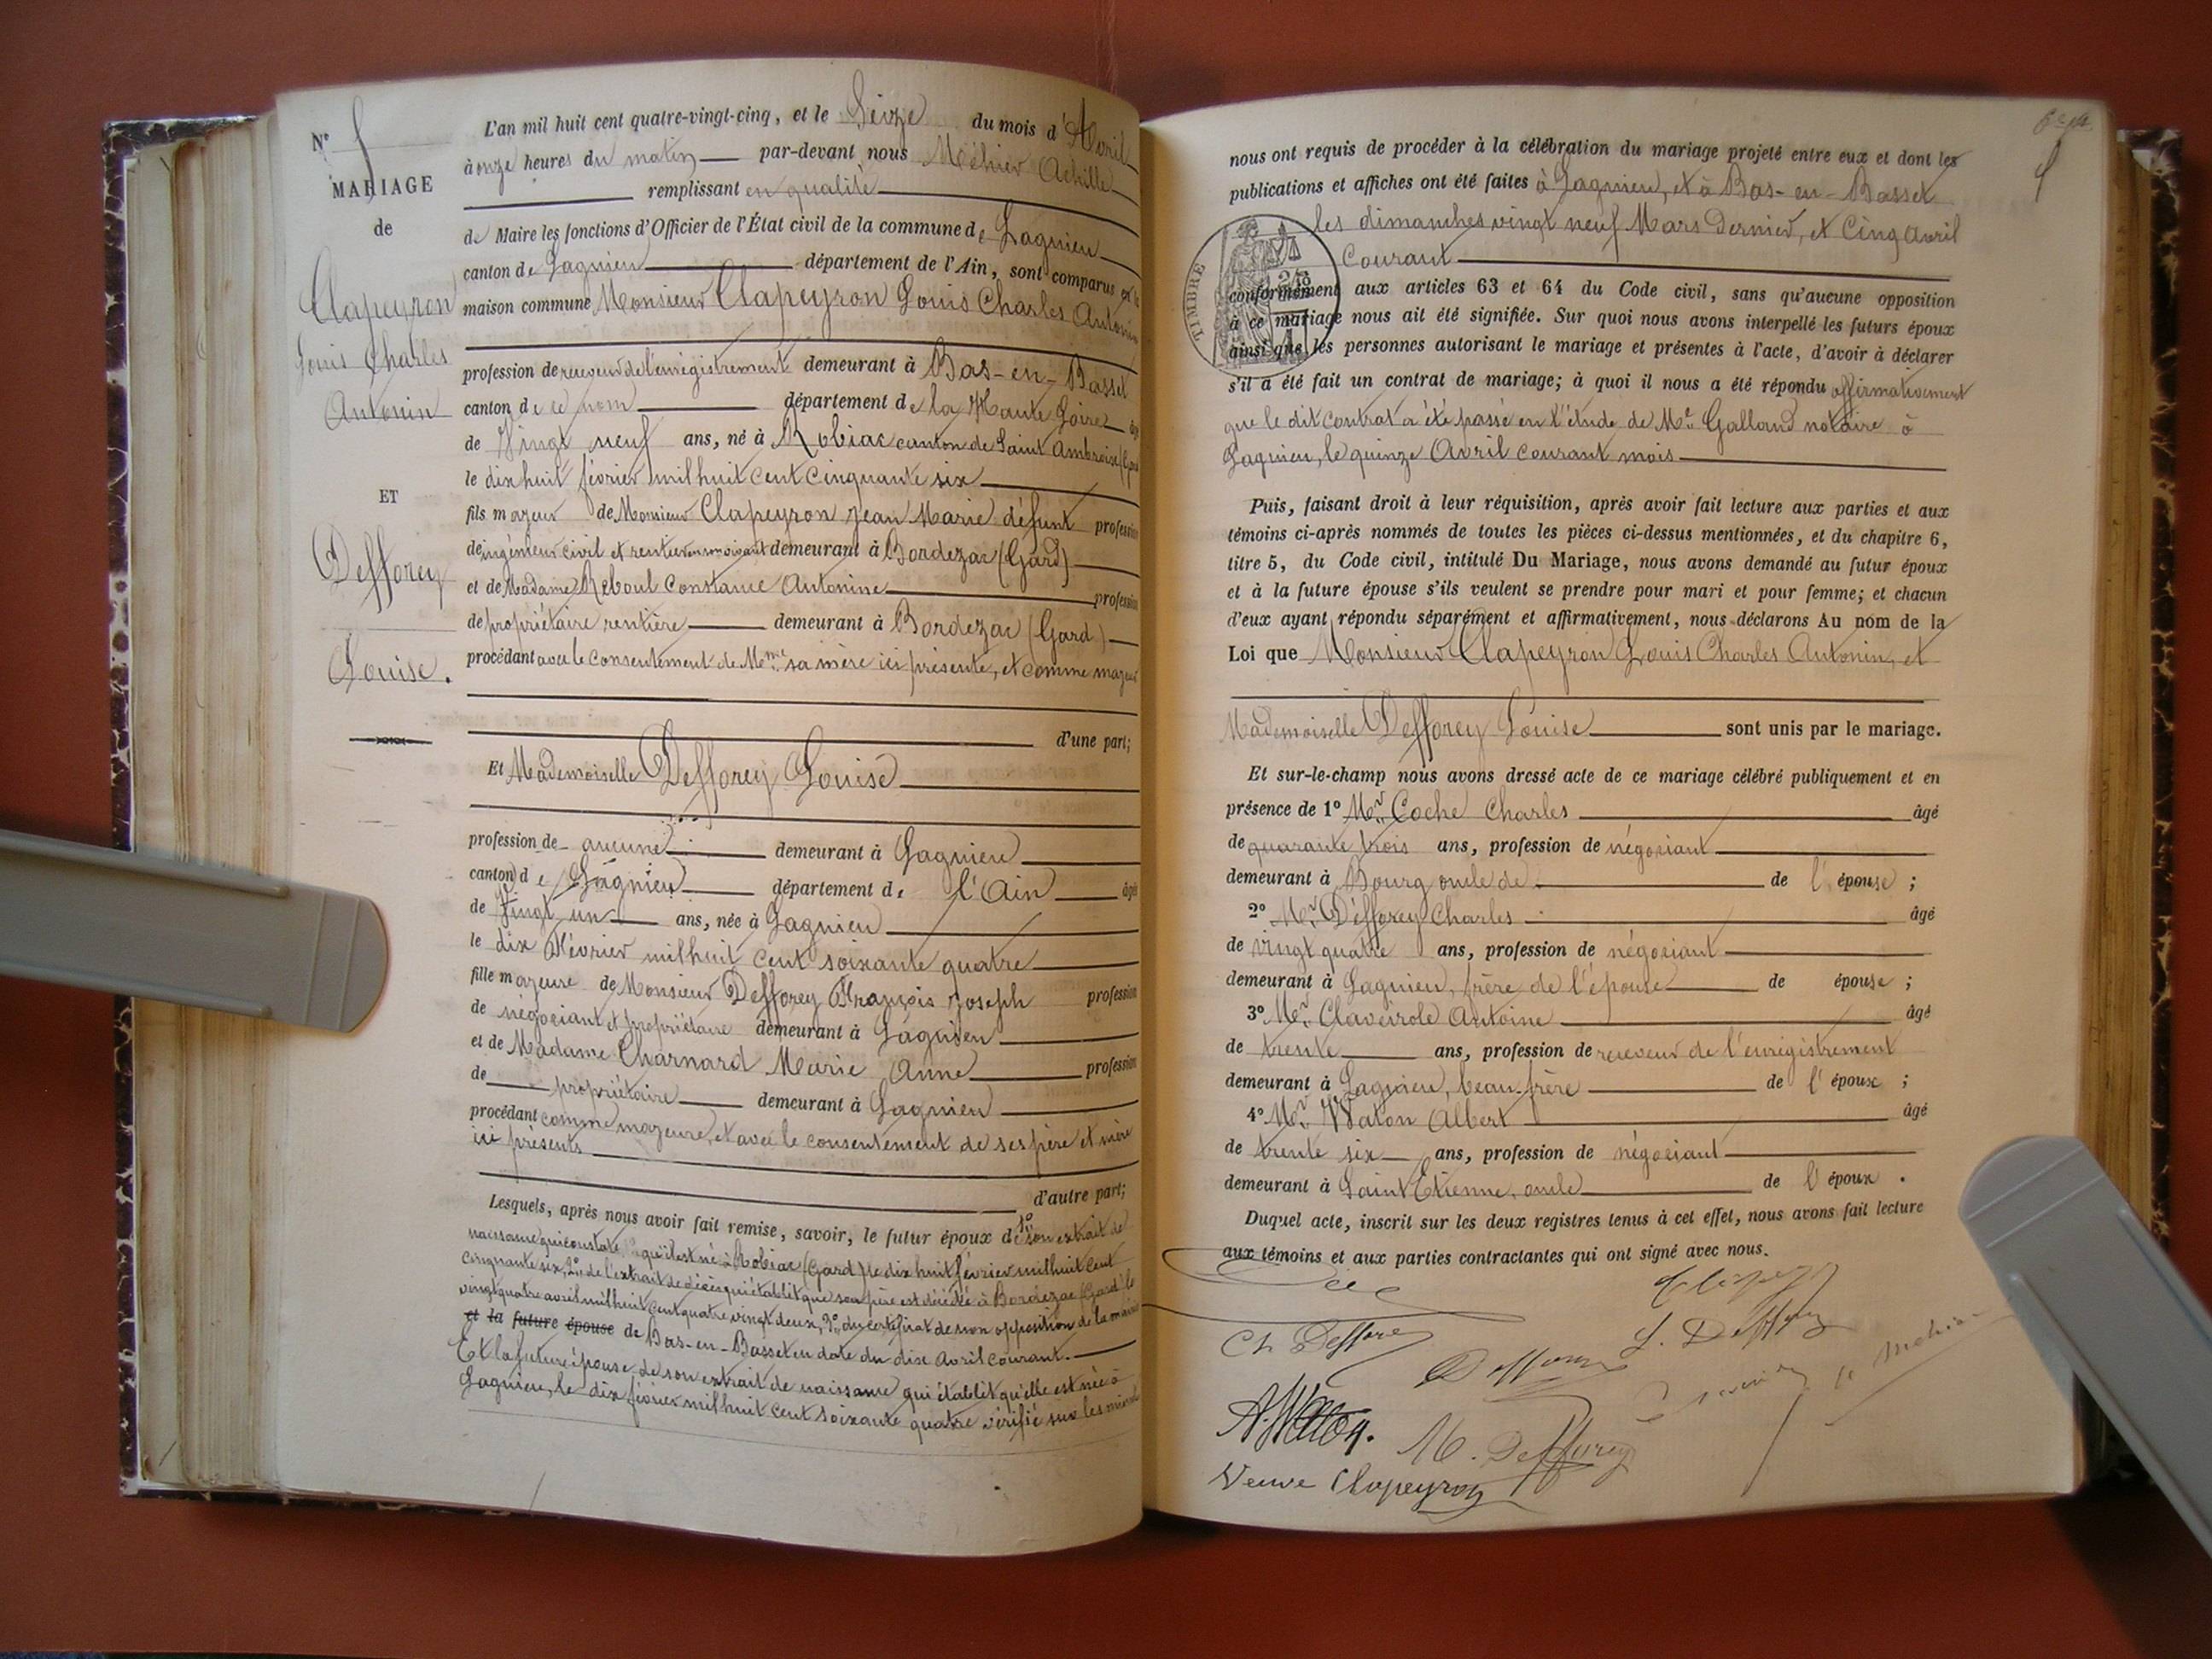 N°
MARIAGE
de
Clapeyron
Louis Charles
Antonin
ET
Defforey
Louise.
L'an mil huit cent quatre-vingt-cinq, et le Seize du mois d'Avril
à onze heures du matin par-devant nous Méhier Achille
remplissant en qualité
de Maire les fonctions d'Officier de l'État civil de la commune de Lagnieu
canton de Lagnieu département de l'Ain, sont comparus en la
maison commune Monsieur Clapeyron Louis Charles Antonin
profession de receveur de l'enregistrement demeurant à Bas-en-Basset
canton de ce nom département de la Haute Loire
de Vingt neuf ans, né à Robiac canton de Saint Ambroise (Gard
le dix huit février mil huit cent cinquante six
fils majeur de Monsieur Clapeyron Jean Marie défunt profession
de ingénieur civil et rentier en son vivant demeurant à Bordezac (Gard)
et de Madame Reboul Constance Antonine profession
de propriétaire rentière demeurant à Bordezac (Gard)
procédant avec le consentement de Mme sa mère ici présente, et comme majeur
d'une part;
Et Mademoiselle Defforey Louise
profession de aucune demeurant à Lagnieu
canton de Lagnieu département de l'Ain âgée
de Vingt un ans, née à Lagnieu
le dix Février mil huit cent soixante quatre
fille majeure de Monsieur Defforey François Joseph profession
de négociant et propriétaire demeurant à Lagnieu
et de Madame Charnard Marie Anne profession
de propriétaire demeurant à Lagnieu
procédant comme majeure, et avec le consentement de ses père et mère
ici présents
d'autre part;
Lesquels, après nous avoir fait remise, savoir, le futur époux de 1° son extrait de
naissance qui constate qu'il est né à Robiac (Gard) le dix huit février mil huit cent
cinquante six, 2° de l'extrait de décès qui établit que son père est décédé à Bordezac (Gard) le
vingt quatre avril mil huit cent quatre vingt deux, 3° du certificat de non opposition de la mairie
et la future épouse de Bas-en-Basset en date du dix avril courant.
Et la future épouse de son extrait de naissance qui établit qu'elle est née à
Lagnieu, le dix février mil huit cent soixante quatre vérifié sur les
nous ont requis de procéder à la célébration du mariage projeté entre eux et dont les
publications et affiches ont été faites à Lagnieu, et à Bas-en-Basset
les dimanches vingt neuf Mars Dernier, et Cinq avril
Courant
TIMBRE
conformément aux articles 63 et 64 du Code civil, sans qu'aucune opposition
à ce mariage nous ait été signifiée. Sur quoi nous avons interpellé les futurs époux
ainsi que les personnes autorisant le mariage et présentes à l'acte, d'avoir à déclarer
s'il a été fait un contrat de mariage; à quoi il nous a été répondu affirmativement
que le dit contrat a été passé en l'étude de Me Galland notaire à
Lagnieu, le quinze Avril courant mois
Puis, faisant droit à leur réquisition, après avoir fait lecture aux parties et aux
témoins ci-après nommés de toutes les pièces ci-dessus mentionnées, et du chapitre 6,
titre 5, du Code civil, intitulé Du Mariage, nous avons demandé au futur époux
et à la future épouse s'ils veulent se prendre pour mari et pour femme; et chacun
d'eux ayant répondu séparément et affirmativement, nous déclarons Au nom de la
Loi que Monsieur Clapeyron Louis Charles Antonin, et
Mademoiselle Defforey Louise sont unis par le mariage.
Et sur-le-champ nous avons dressé acte de ce mariage célébré publiquement et en
présence de 1° Mr Coche Charles âgé
de quarante trois ans, profession de négociant
demeurant à Bourg oncle de de l'épouse;
2° Mr Defforey Charles âgé
de vingt quatre ans, profession de négociant
demeurant à Lagnieu, frère de l'épouse de épouse;
3° Mr Claveirole Antoine âgé
de trente ans, profession de receveur de l'enregistrement
demeurant à Lagnieu, beau-frère de l'époux;
4° Mr Waton Albert âgé
de trente six ans, profession de négociant
demeurant à Saint Etienne, oncle de l'époux.
Duquel acte, inscrit sur les deux registres tenus à cet effet, nous avons fait lecture
aux témoins et aux parties contractantes qui ont signé avec nous.
Ch Defforey
L. Defforey
A. Waton.
M. Defforey
Veuve Clapeyron